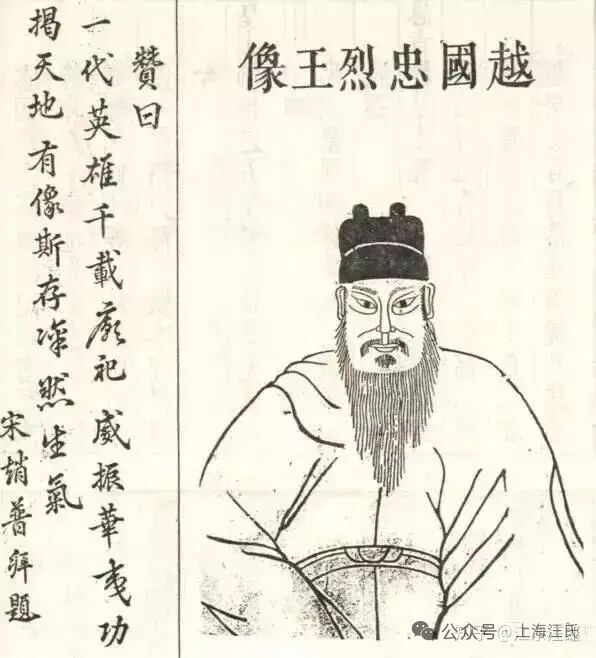 越國忠烈王像
贊曰
一代英雄千載廟祀威振華夷功
揭天地有像斯存凜然生氣
宋趙普拜題
公众号·上海汪氏